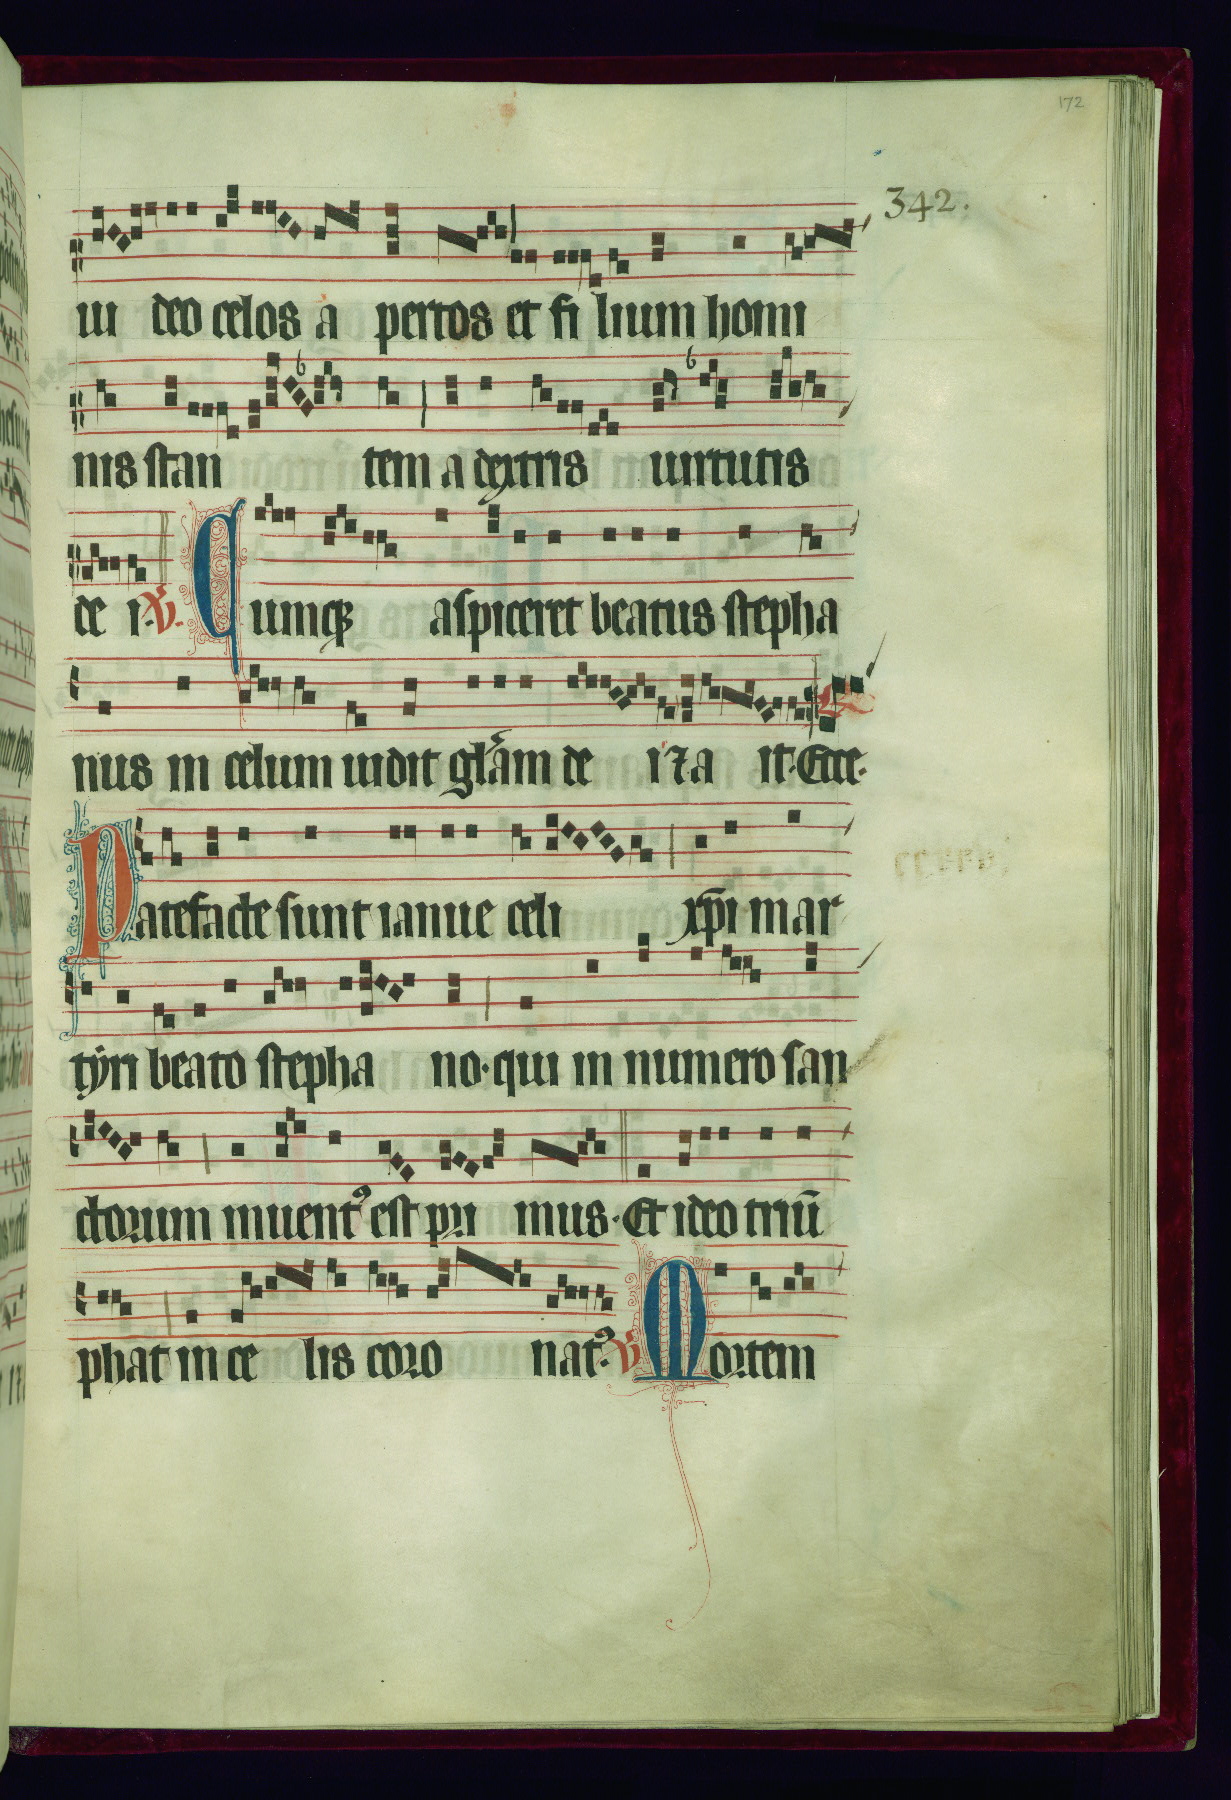 172
342.
ui deo celos a pertos et fi lium homi
nis stan tem a dextris uirtutis
de i. V. Cumq; aspiceret beatus stepha
nus in celum uidit gl̃am de i ⁊ a it. Ecce.
Patefacte sunt ianue celi xp̃i mar
tyri beato stepha no. qui in numero san
ctorum inuentꝰ est pri mus. Et ideo triũ
phat in ce lis coro natꝰ. V Mortem